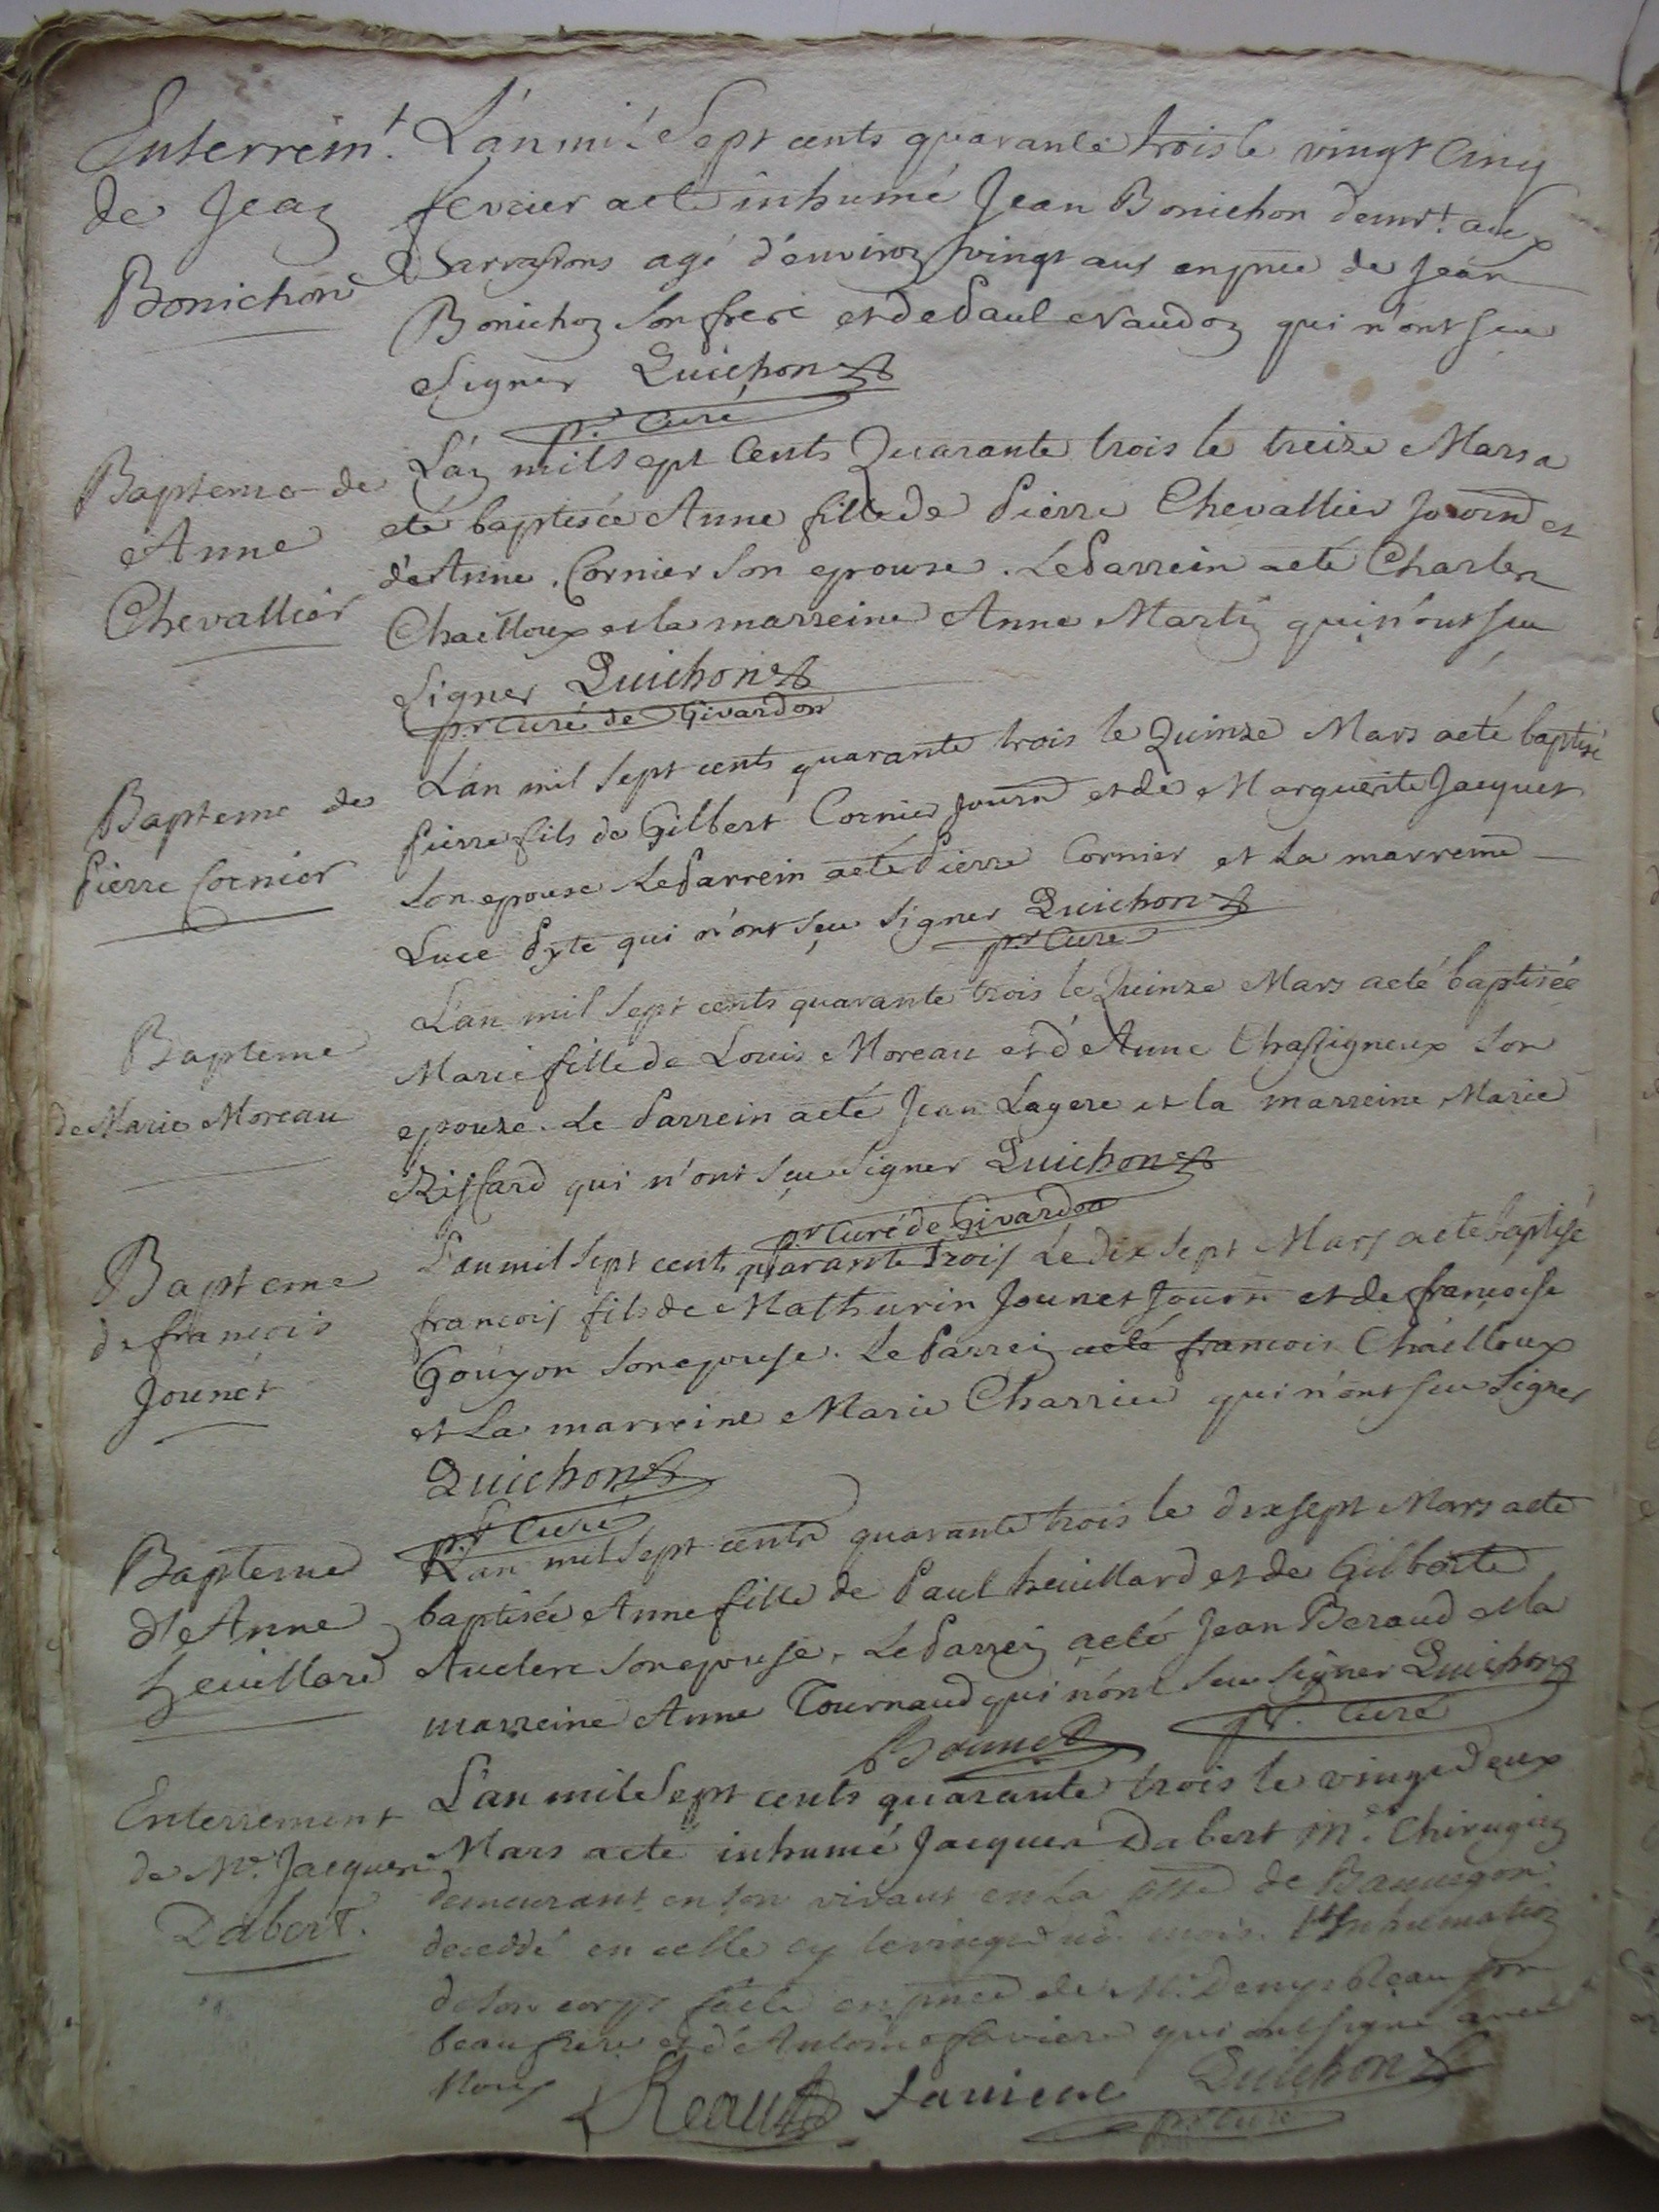 Enterrem.t
de Jean
Bonichon
L'an mil Sept cents quarante trois le vingt Cinq
fevrier a eté inhumé Jean Bonichon demrt. aux
agé d'environ vingt ans en pnce de Jean
Bonichon Son frere et de Paul Naudon qui n'ont sçu
Signer Quichon
pr. Curé
Bapteme de
Anne
Chevallier
L'an mil Sept Cents Quarante trois le treize Mars a
eté baptisée Anne fille de Pierre Chevallier Journ et
d'Anne Cornier Son epouse. Le Parrein a eté Charles
Chailloux et la marreine Anne Martin qui n'ont sçu
Signer Quichon
pr Curé de Givardon
Bapteme de
Pierre Cornier
L'an mil Sept cents quarante trois le Quinze Mars a eté baptisé
Pierre fils de Gilbert Cornier Journ et de Marguerite Jacquet
Son epouse Le Parrein a eté Pierre Cornier et La marreine
Luce qui n'ont sçu Signer Quichon
pr Curé
Bapteme
de Marie Moreau
L'an mil Sept cents quarante trois le Quinze Mars a eté baptisée
Marie fille de Louis Moreau et d'Anne Chassigneux Son
epouse. Le Parrein a eté Jean Lagere et la marreine Marie
Riffard qui n'ont sçu Signer Quichon
pr Curé de Givardon
Bapteme
de francois
Jounet
L'an mil Sept cent quarante trois Le dix Sept Mars a eté baptisé
francois fils de Mathurin Jounet Journ et de francoise
Gouyon Son epouse. Le Parrein a eté francois Chailloux
et La marreine Marie Charrieu qui n'ont sçu Signer
Quichon
pr Curé
Bapteme
d'Anne
heuillard
L'an mil Sept cents quarante trois le dix sept Mars a eté
baptisée Anne fille de Paul heuillard et de Gilberte
Auclerc Son epouse, Le Parrein a eté Jean Beraud et la
marreine Anne Tournaud qui n'ont Sçu Signer Quichon
pr. Curé
Enterrement
de Mr. Jacques
Dabert.
L'an mil Sept cents quarante trois le vingt deux
Mars a eté inhumé Jacques Dabert Me. Chirugien
demeurant en Son vivant en La psse de
decedé en celle cy le vingt du mois. L'Inhumation
de Son corps faite en pnce de Mr. Denys Reau Son
beau frere et d'Antoine faviere qui ont signé avec
Nous Reau faviere Quichon
pr Curé